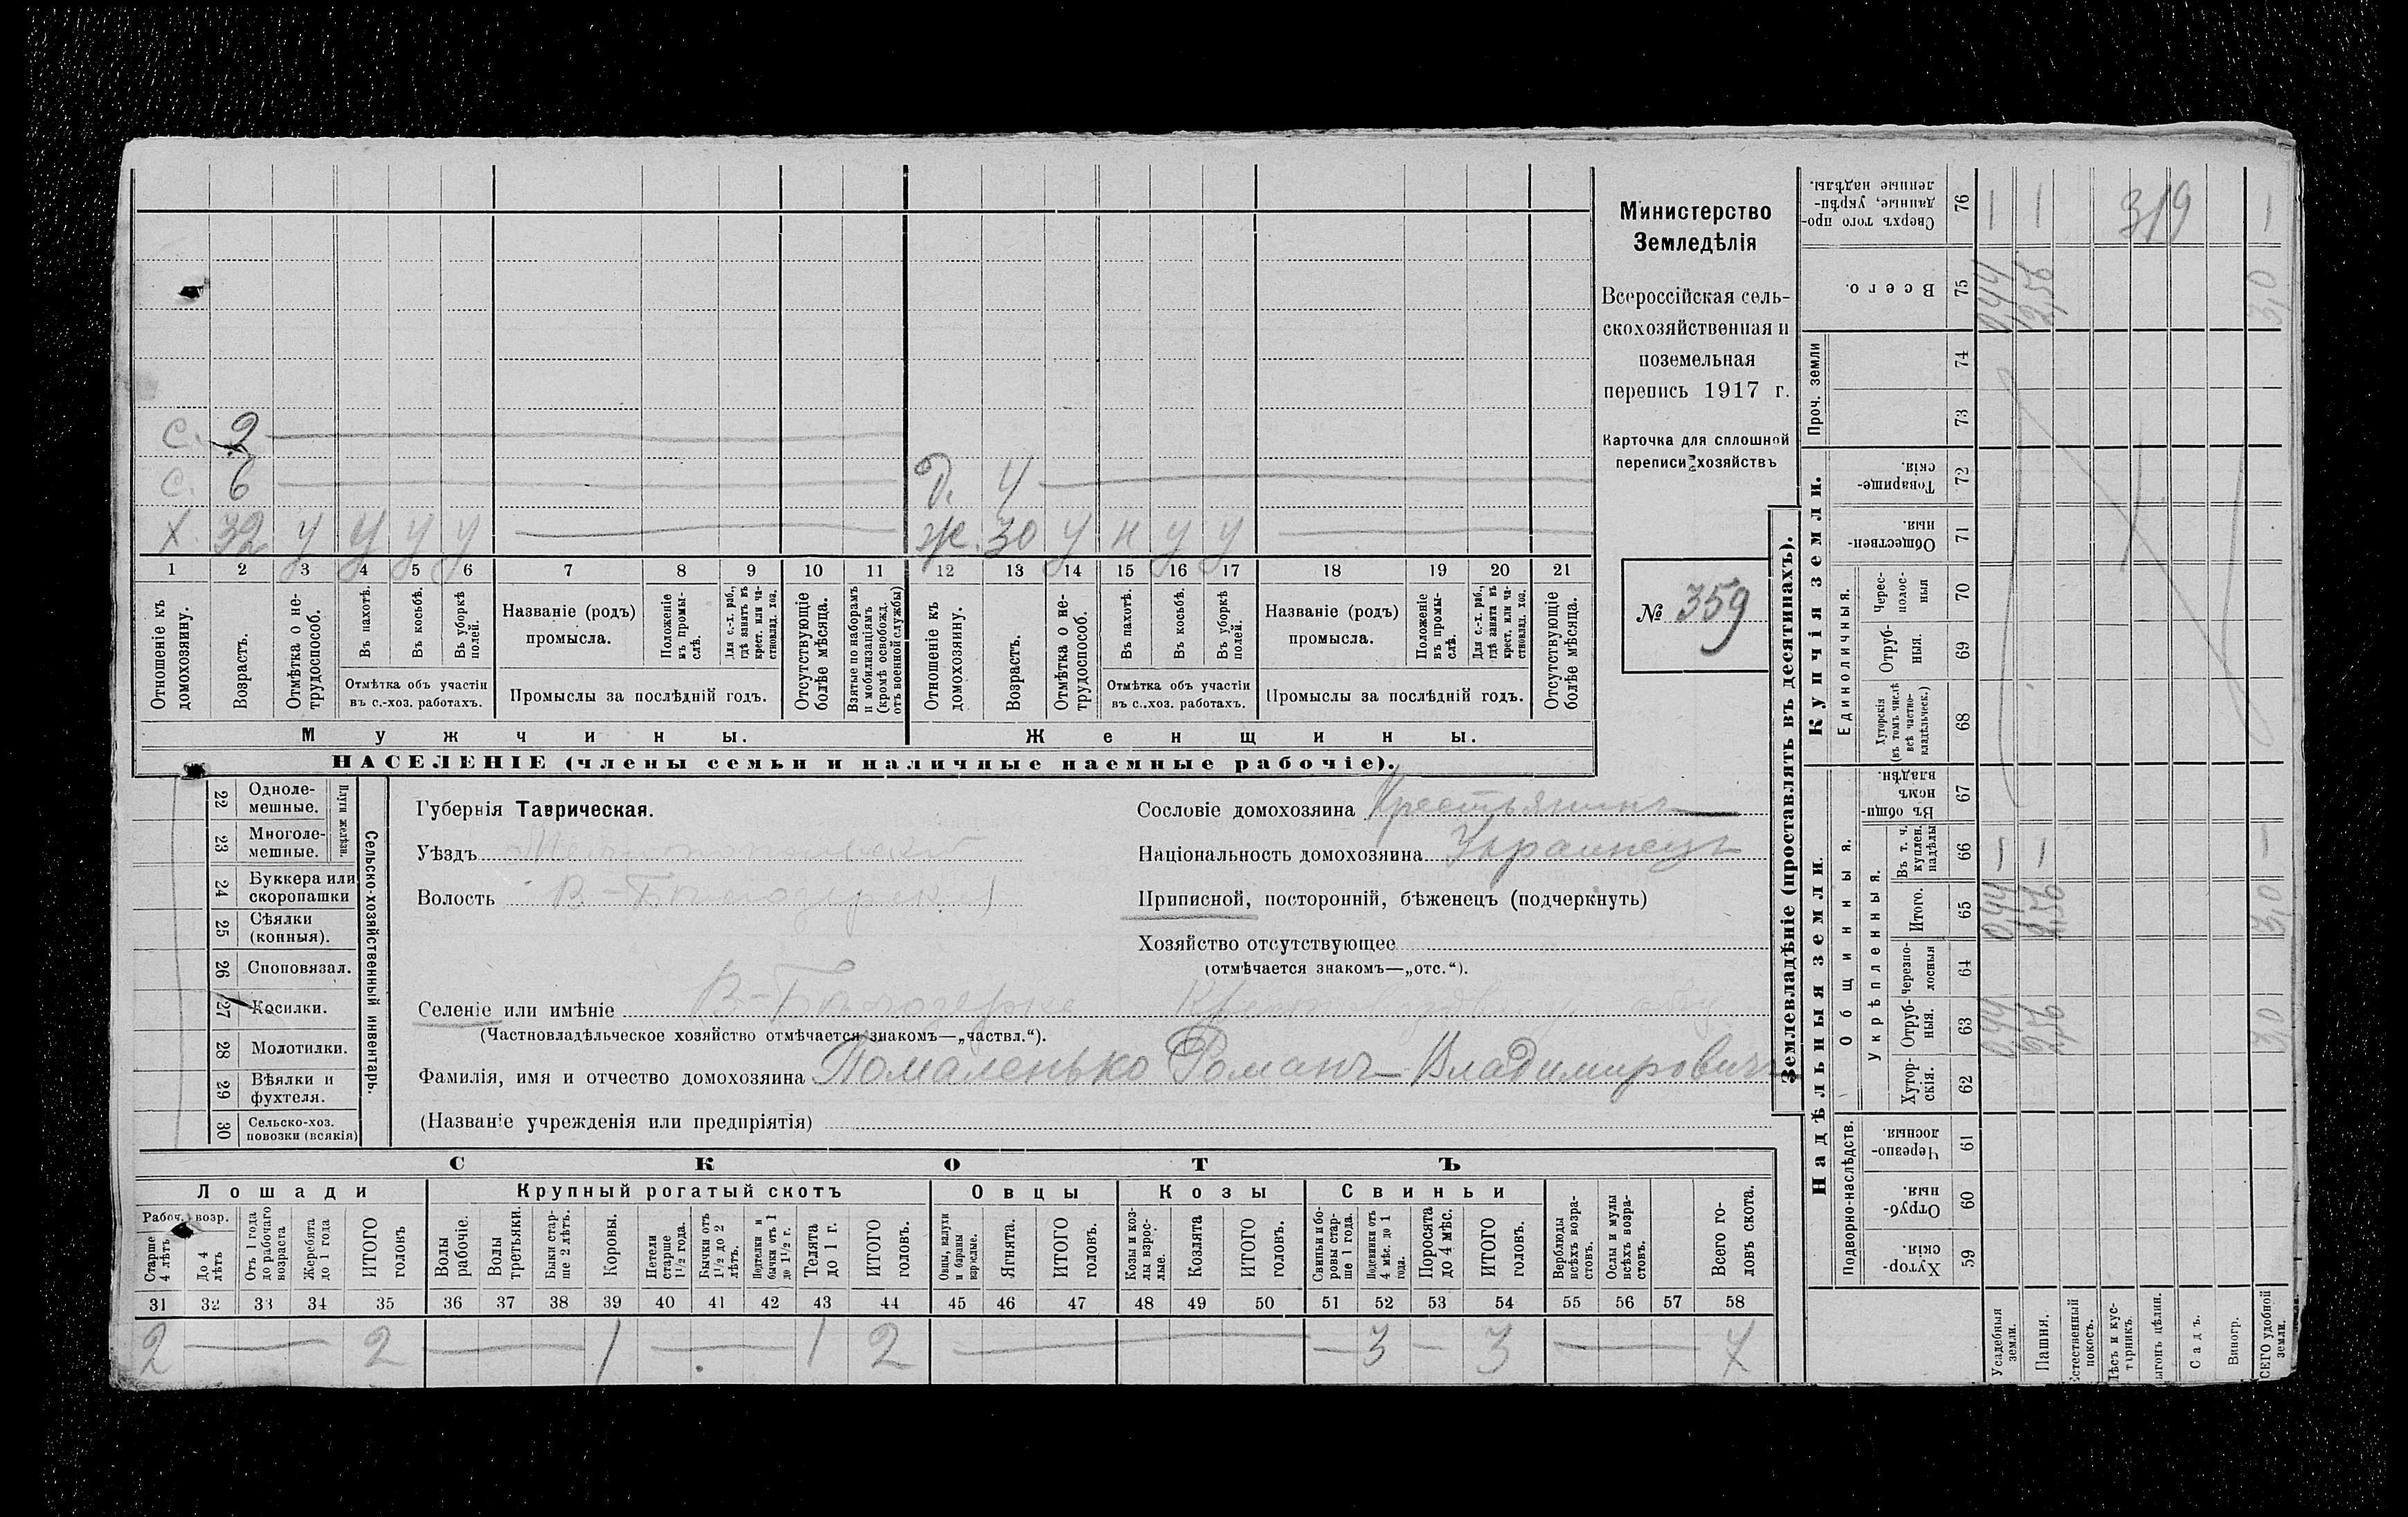 Министерство
Земледѣлія
Всероссійская сель-
скохозяйственная и
поземельная
перепись 1917 г.
Карточка для сплошной
переписи хозяйствъ
№ 359
С. 2
С. 6
Х. 32 у у у у
Д. 4
Ж. 30 у н у у
1 2 3 4 5 6 7 8 9 10 11 12 13 14 15 16 17 18 19 20 21
Отношеніе къ домохозяину.
Возрастъ.
Отмѣтка о не-трудоспособ.
Въ пахотѣ.
Въ косьбѣ.
Въ уборкѣ полей.
Отмѣтка объ участіи
въ с.-хоз. работахъ.
Названіе (родъ)
промысла.
Положеніе въ промы-слѣ.
Для с.-х. раб., гдѣ занятъ въ крест. или ча-стновлад. хоз.
Промыслы за послѣдній годъ.
Отсутствующіе болѣе мѣсяца.
Взятые по наборамъ и мобилизаціямъ (кромѣ освобожд. отъ военной службы)
Отношеніе къ домохозяину.
Возрастъ.
Отмѣтка о не-трудоспособ.
Въ пахотѣ.
Въ косьбѣ.
Въ уборкѣ полей.
Отмѣтка объ участіи
въ с..хоз. работахъ.
Названіе (родъ)
промысла.
Положеніе въ промы-слѣ.
Для с.-х. раб., гдѣ занята въ крест. или ча-стновлад. хоз.
Промыслы за послѣдній годъ.
Отсутствующіе болѣе мѣсяца.
Мужчины.
Женщины.
НАСЕЛЕНІЕ (члены семьи и наличные наемные рабочіе).
Сельско-хозяйственный инвентарь.
Плуги желѣзн.
22 Одноле-мешные.
23 Многоле-мешные.
24 Буккера или скоропашки
25 Сѣялки (конныя).
26 Сноповязал.
27 Косилки.
28 Молотилки.
29 Вѣялки и фухтеля.
30 Сельско-хоз. повозки (всякія)
Губернія Таврическая.
Уѣздъ
Волость В-Бѣлозерская
Селеніе или имѣніе В-Бѣлозерка
(Частновладѣльческое хозяйство отмѣчается знакомъ—„частвл.“).
Фамилія, имя и отчество домохозяина Помаленько Романъ Владимировичъ
(Названіе учрежденія или предпріятія)
Сословіе домохозяина Крестьянинъ
Національность домохозяина Украинецъ
Приписной, посторонній, бѣженецъ (подчеркнуть)
Хозяйство отсутствующее
(отмѣчается знакомъ—„отс.“).
СКОТЪ
Лошади
Крупный рогатый скотъ
Овцы
Козы
Свиньи
Рабоч. возр.
Старше 4 лѣтъ
До 4 лѣтъ
Отъ 1 года до рабочаго возраста
Жеребята до 1 года
ИТОГО головъ
Волы рабочіе.
Волы третьяки.
Быки стар-ше 2 лѣтъ.
Коровы.
Нетели старше 1½ года.
Бычки отъ 1½ до 2 лѣтъ.
Подтелки и бычки отъ 1 до 1½ г.
Телята до 1 г.
ИТОГО головъ.
Овцы, валухи и бараны взрослые.
Ягнята.
ИТОГО головъ.
Козы и коз-лы взрос-лые.
Козлята
ИТОГО головъ.
Свиньи и бо-ровы стар-ше 1 года.
Подсвинки отъ 4 мѣс. до 1 года.
Поросята до 4 мѣс.
ИТОГО головъ.
Верблюды всѣхъ возра-стовъ.
Ослы и мулы всѣхъ возра-стовъ.
Всего го-ловъ скота.
31 32 33 34 35 36 37 38 39 40 41 42 43 44 45 46 47 48 49 50 51 52 53 54 55 56 57 58
2 — 2 — 1 — 1 2 — — 3 — 3 — 7
Землевладѣніе (проставлять въ десятинахъ).
Надѣльныя земли.
Купчія земли.
Проч. земли
Подворно-наслѣдств.
Общинныя.
Укрѣпленныя.
Единоличныя.
Сверхъ того про-данные, укрѣп-ленные надѣлы. 76 — — 319 —
Всего. 75 0,44 2,56 3,0
74
73
Товарище-скія. 72
Обществен-ныя. 71
Черес-полос-ныя 70
Отруб-ныя. 69
Хуторскія (въ томъ числѣ всѣ частно-владѣльческ.) 68
Въ общи-номъ владѣн. 67
Въ т. ч. куплен. надѣлы 66 — — —
Итого. 65 0,44 2,56 3,0
Черезпо-лосныя 64
Отруб-ныя. 63 0,44 2,56 3,0
Хутор-скія. 62
Черезпо-лосныя. 61
Отруб-ныя. 60
Хутор-скія. 59
Усадебныя земли.
Пашня.
Естественный покосъ.
Лѣсъ и кус-тарникъ.
Выгонъ цѣлин.
Садъ.
Виногр.
ВСЕГО удобной земли.